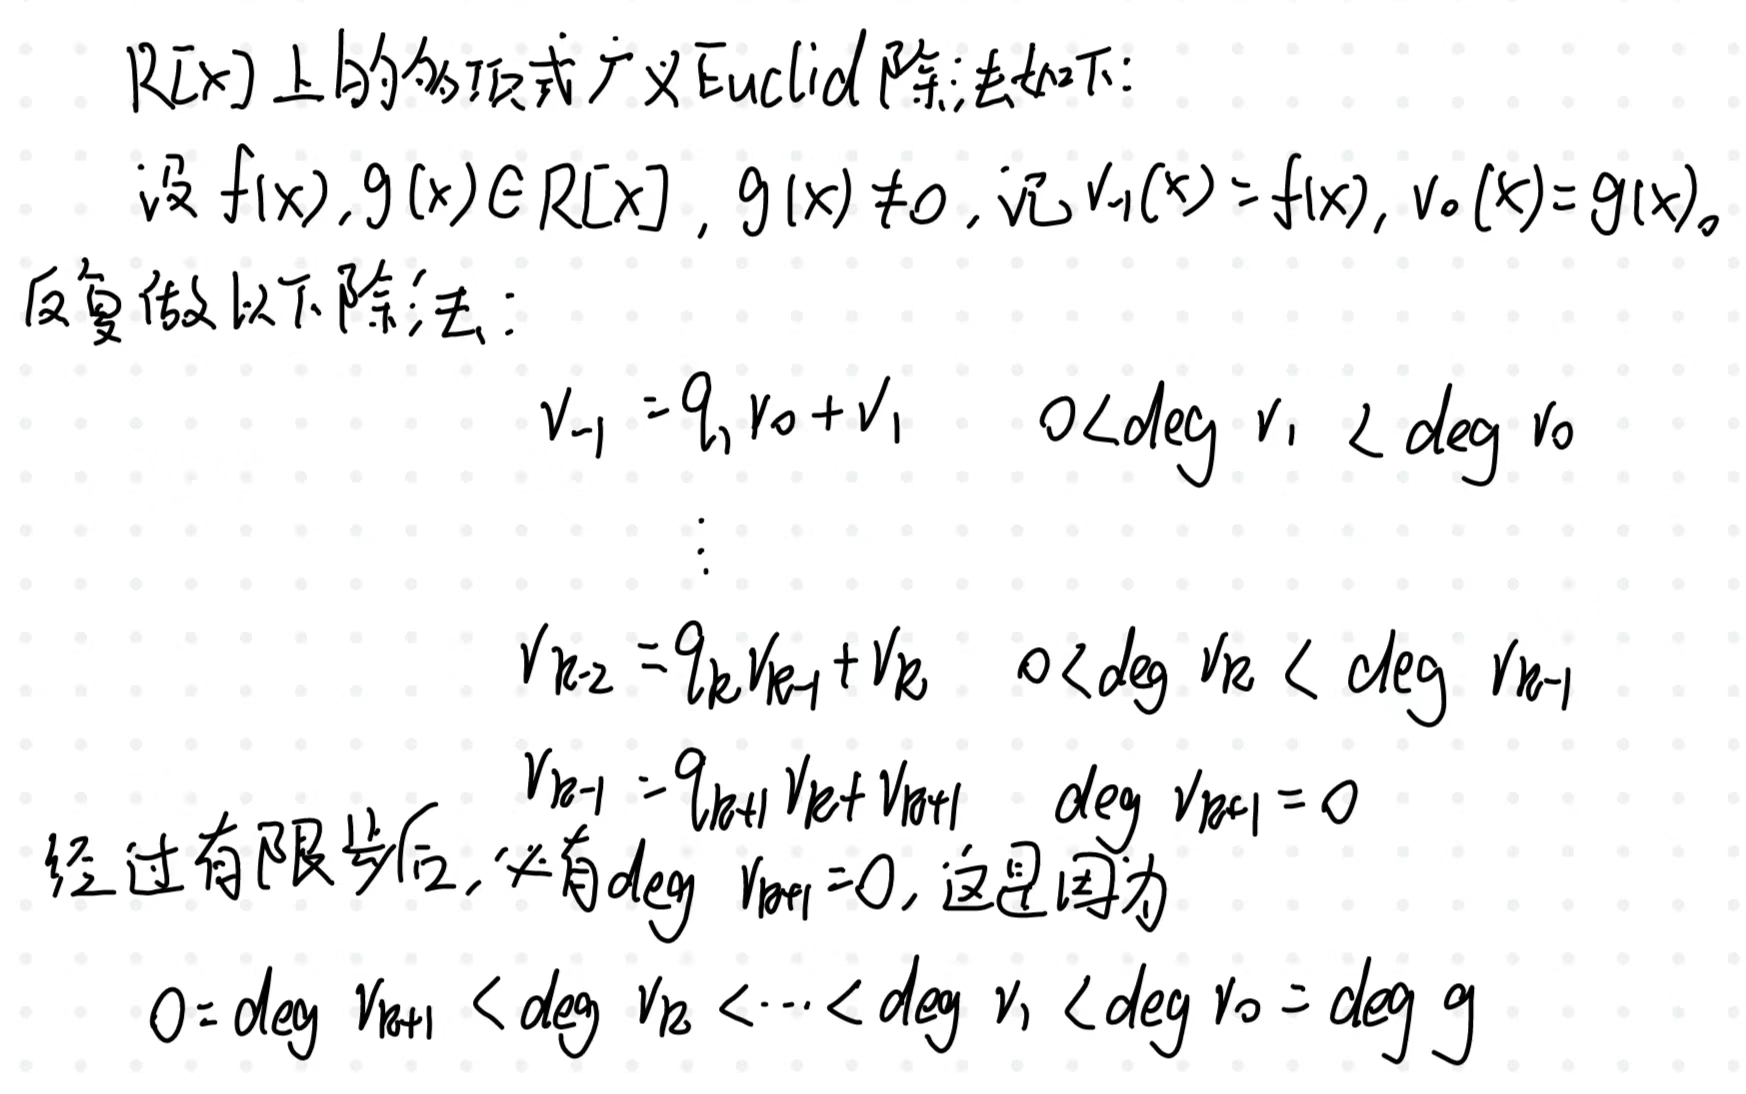 R[x]上的多项式广义Euclid除法如下:
设 f(x), g(x)∈R[x], g(x)≠0, 记 r₋₁(x)=f(x), r₀(x)=g(x)。
反复做以下除法:
r₋₁ = q₁r₀ + r₁  0<deg r₁ < deg r₀
⋮
rₖ₋₂ = qₖrₖ₋₁ + rₖ  0<deg rₖ < deg rₖ₋₁
rₖ₋₁ = qₖ₊₁rₖ + rₖ₊₁  deg rₖ₊₁ = 0
经过有限步后, 必有deg rₖ₊₁ = 0, 这是因为
0 = deg rₖ₊₁ < deg rₖ < ⋯ < deg r₁ < deg r₀ = deg g